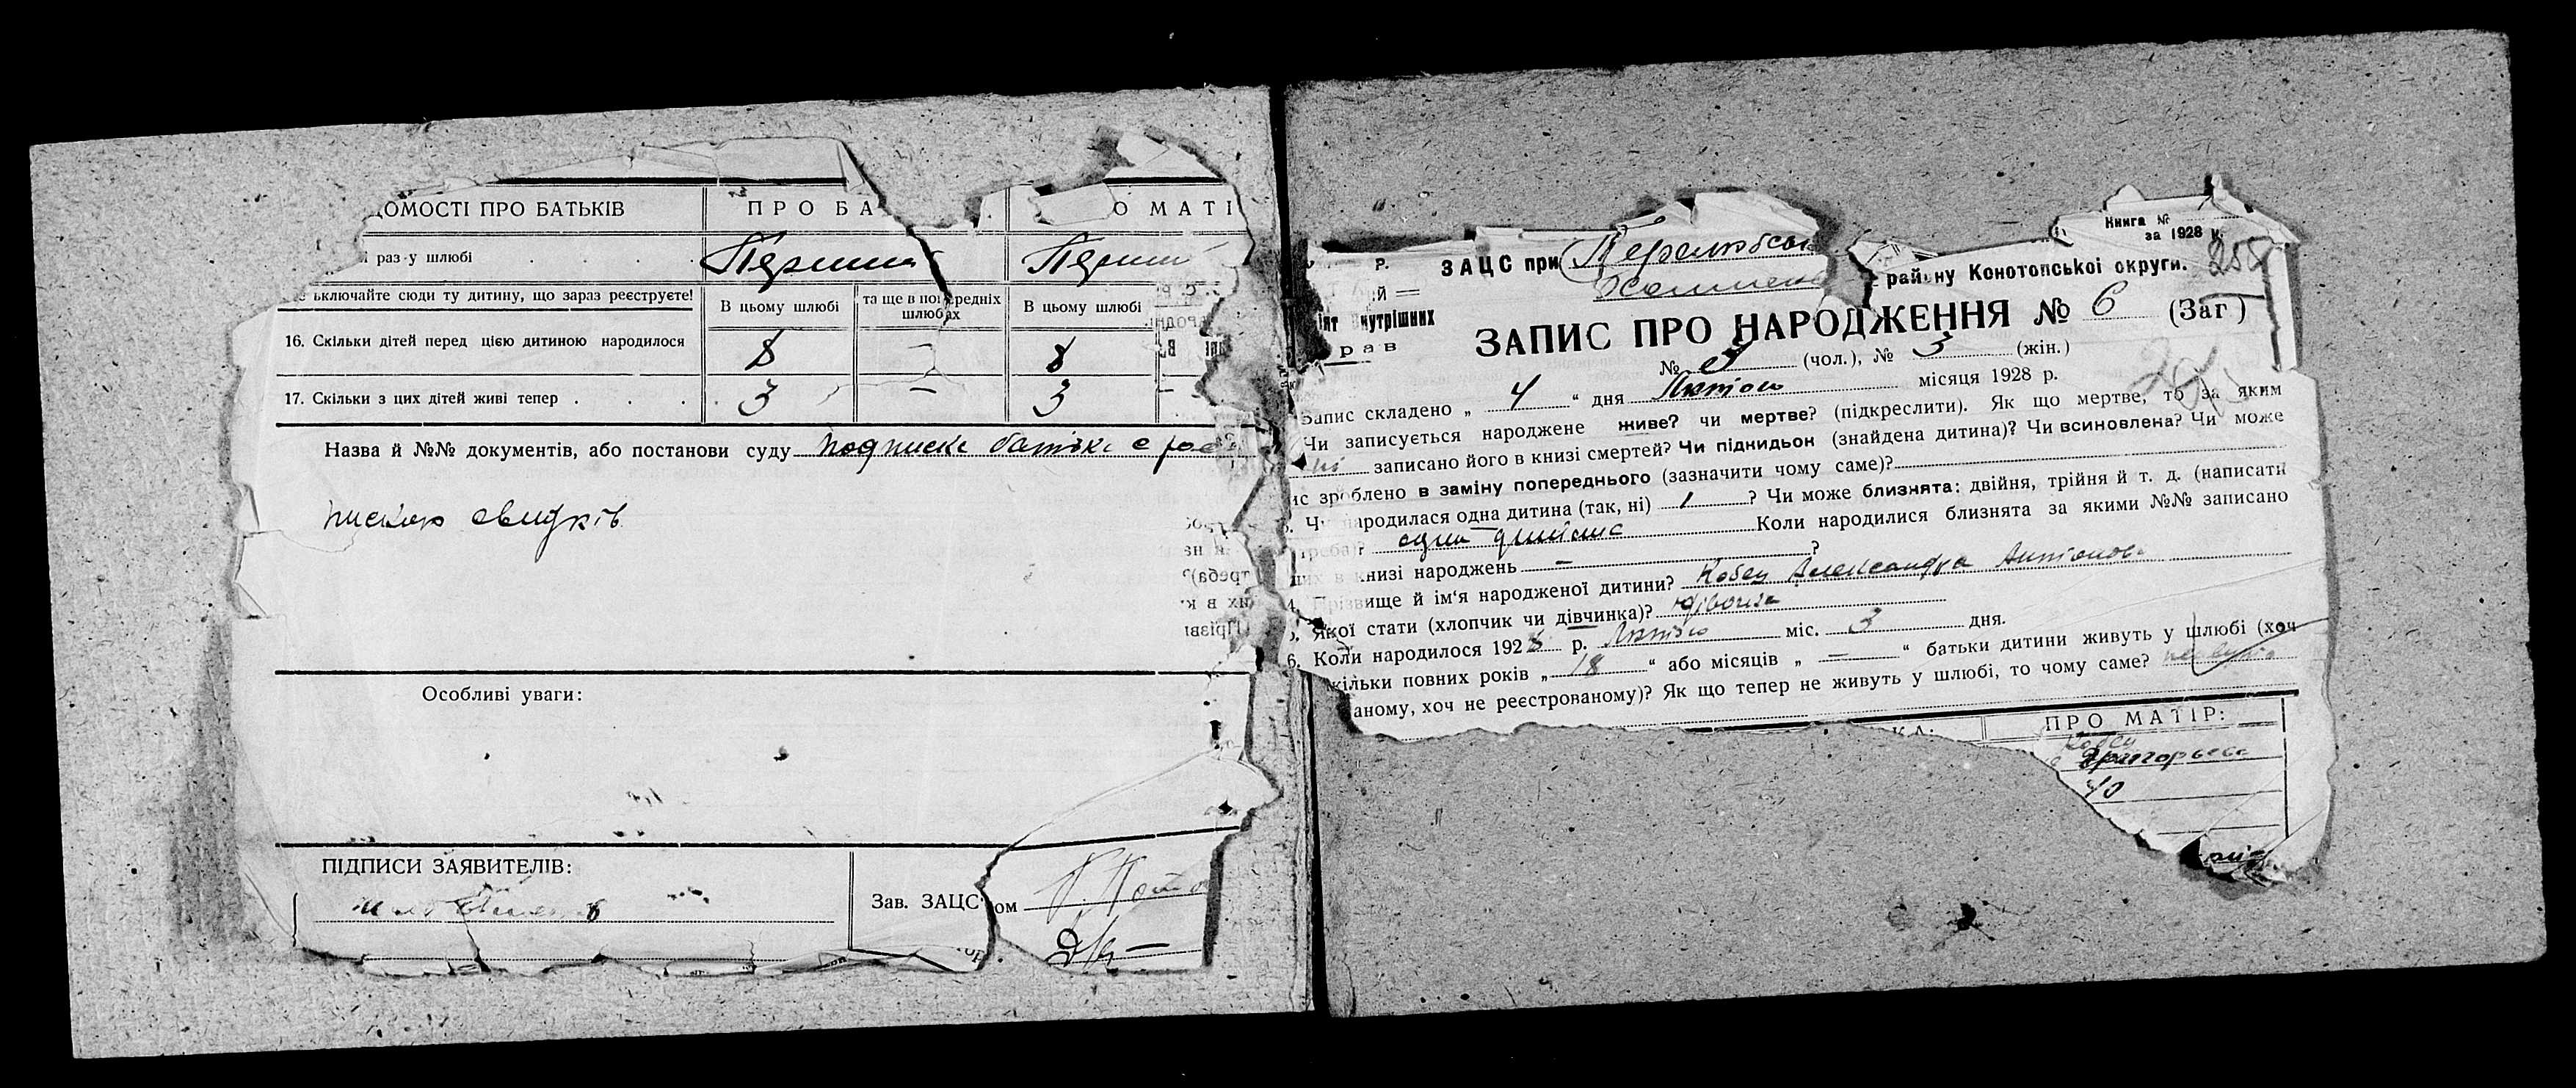 ДОМОСТІ ПРО БАТЬКІВ
П Р О Б А
О М А Т І
раз у шлюбі
Перший
Перший
включайте сюди ту дитину, що зараз реєструєте!
В цьому шлюбі
та ще в попередніх шлюбах
В цьому шлюбі
16. Скільки дітей перед цією дитиною народилося
8
—
8
17. Скільки з цих дітей живі тепер . . . .
3
—
3
Назва й №№ документів, або постанови суду подписка батька
свидків
Особливі уваги:
ПІДПИСИ ЗАЯВИТЕЛІВ:
Зав. ЗАЦС ом
Книга №
за 1928 р.
258
Р. ЗАЦС при
району Конотопської округи.
й =
ят Внутрішних
рав
ЗАПИС ПРО НАРОДЖЕННЯ № 6 (Заг)
№ 3 (чол.), № 3 (жін.)
Запис складено „ 4 “ дня Лютого місяця 1928 р.
Чи записується народжене живе? чи мертве? (підкреслити). Як що мертве, то за яким
№ записано його в книзі смертей? Чи піднидьок (знайдена дитина)? Чи всиновлена? Чи може
ис зроблено в заміну попереднього (зазначити чому саме)?
Чи народилася одна дитина (так, ні) ? Чи може близнята: двійня, трійня й т. д. (написати
треба)? Коли народилися близнята за якими №№ записано
их в книзі народжень — ?
4. Прізвище й ім'я народженої дитини? Кобец Александра Антонов
5. Якої стати (хлопчик чи дівчинка)?
6. Коли народилося 1928 р. Лютого міс. 3 дня.
кільки повних років „ 18 “ або місяців „ — “ батьки дитини живуть у шлюбі (хоч
аному, хоч не реєстрованому)? Як що тепер не живуть у шлюбі, то чому саме?
КА:
ПРО МАТІР:
Григорьевна
40